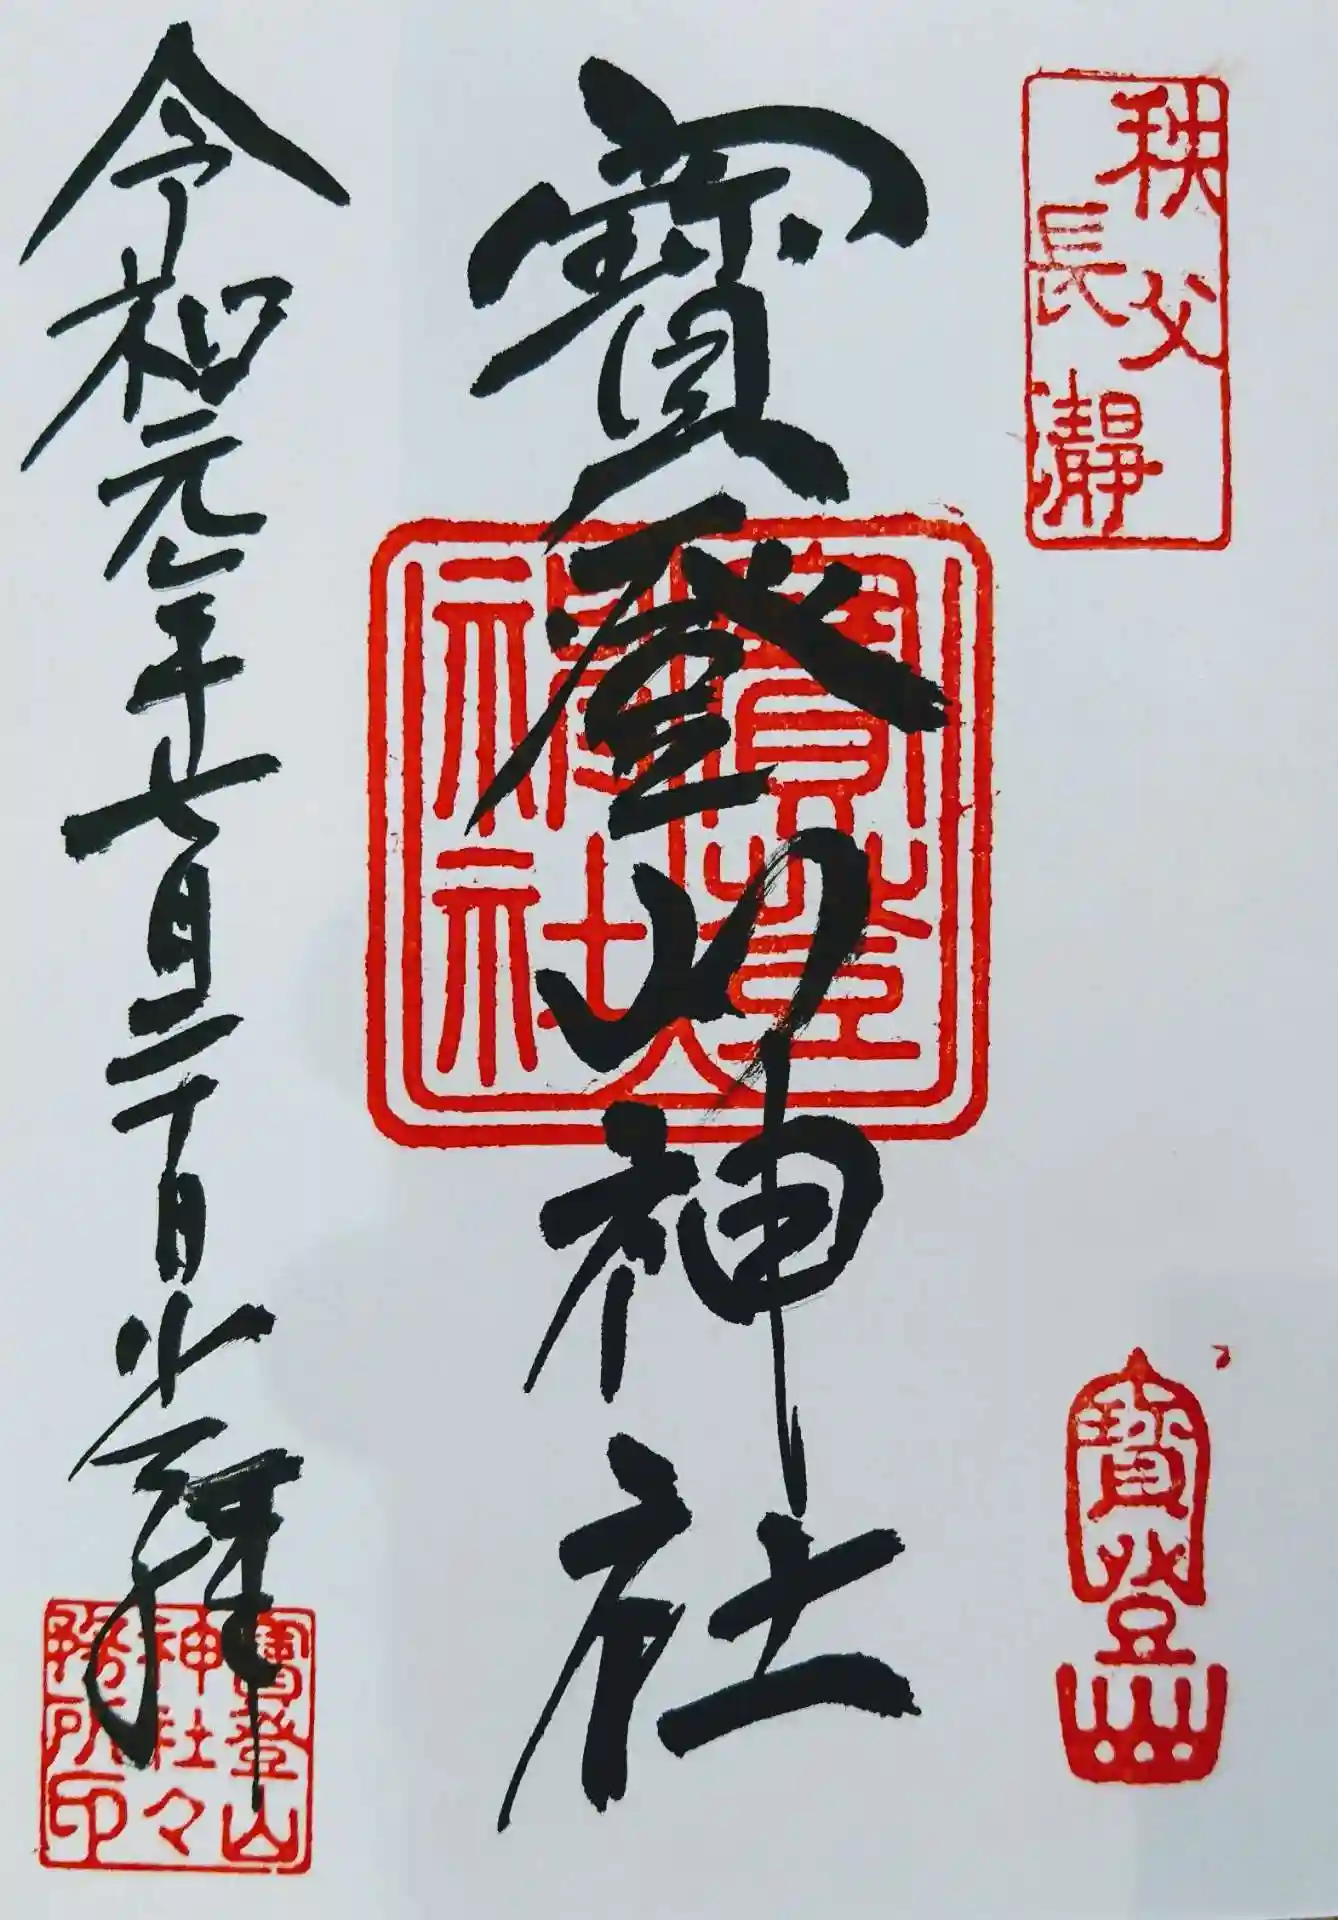 秩父
長瀞
寳登山神社
寳登山
神社
寳登山
令和元年七月二十日参拜
寳登山
神社々
務所印